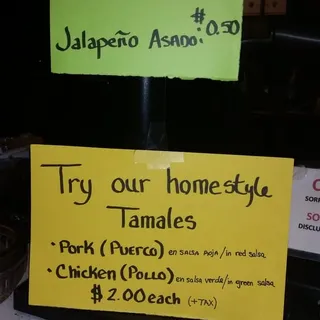 Jalapeño Asado: $0.50
Try our homestyle
Tamales
• Pork (Puerco) en salsa roja/in red salsa
• Chicken (Pollo) en salsa verde/in green salsa
$2.00 each (+TAX)